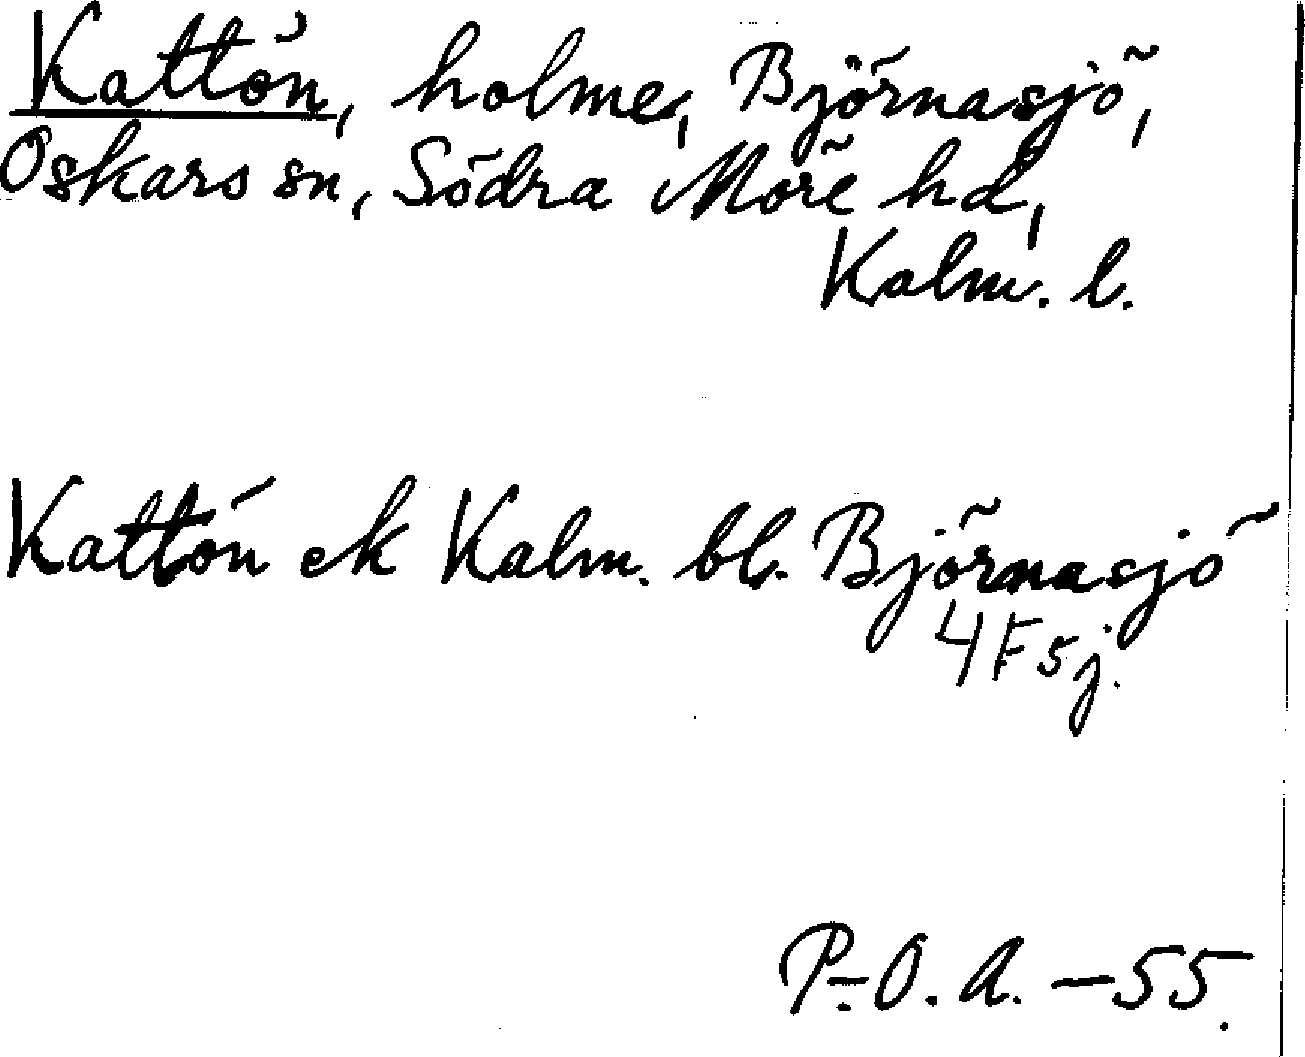 Kattön, holme, Björnasjö,
Oskars sn, Södra Möre hd,
Kalm. l.
Kattön ek Kalm. bl. Björnasjö
4F5j.
P-O. A. -55.